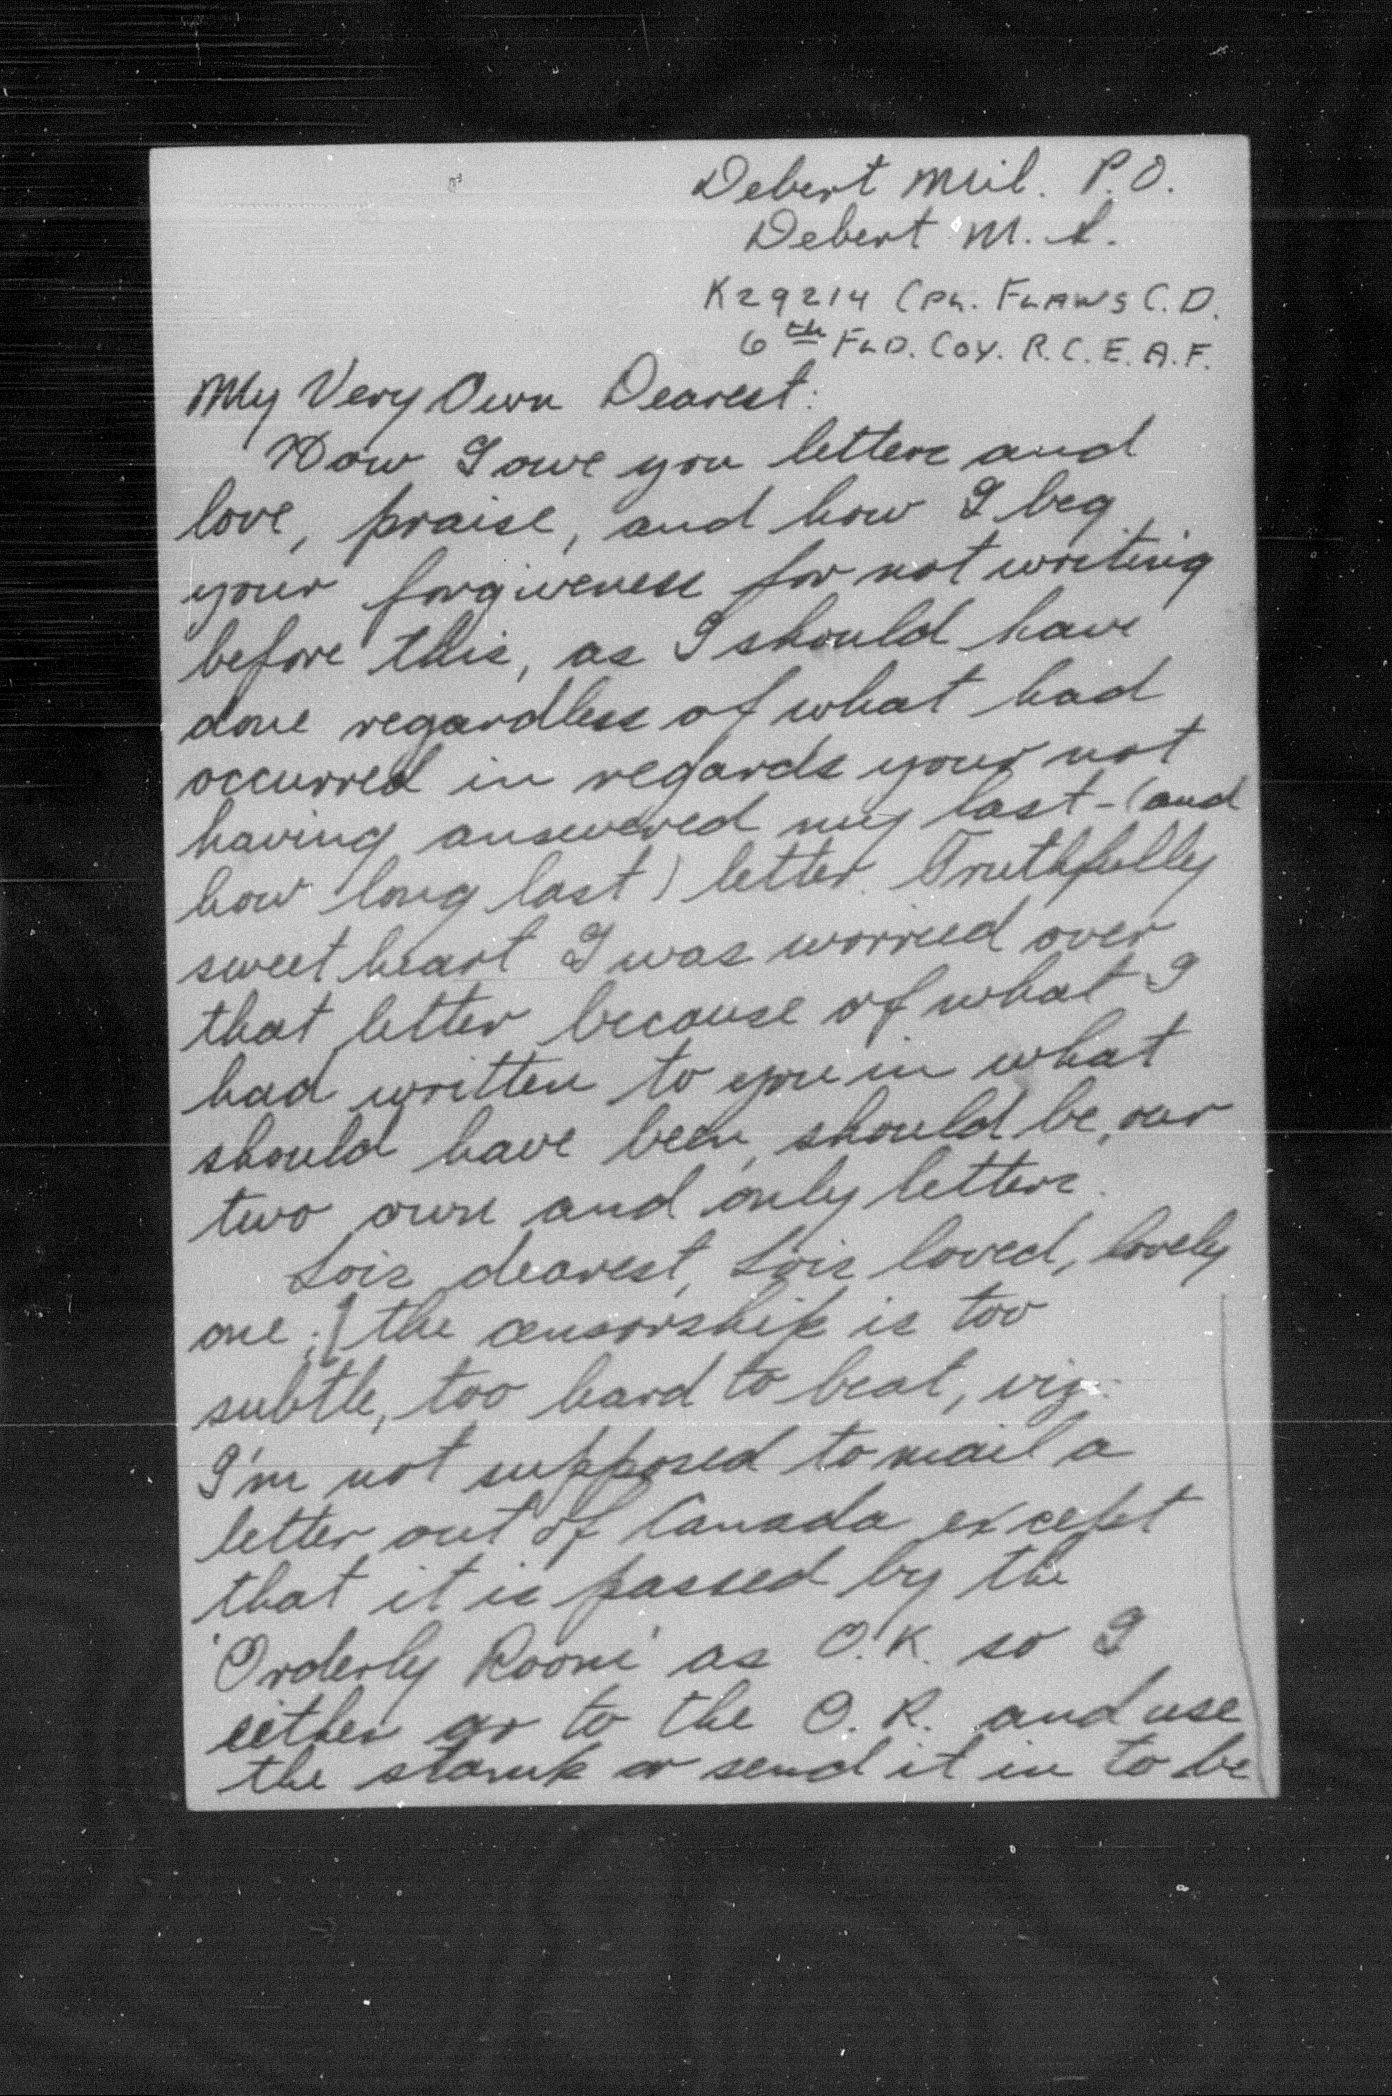 Debert Mil. P.O.
Debert N.S.
K29214 CPL. FLAWS C.D.
6th FLD. COY. R.C.E. A.F.
My Very Own Dearest:
How I owe you letters and
love, praise, and how I beg
your forgiveness for not writing
before this, as I should have
done regardless of what had
occurred in regards your not
having answered my last - (and
how long last) letter. Truthfully
sweet heart I was worried over
that letter because of what I
had written to you in what
should have been, should be, our
two own and only letters.
Lois dearest, Lois loved, lovely
one; [the censorship is too
subtle, too hard to beat, viz:
I'm not supposed to mail a
letter out of Canada except
that it is passed by the
'Orderly Room' as O.K. so I
either go to the O.R. and use
the stamp or send it in to be